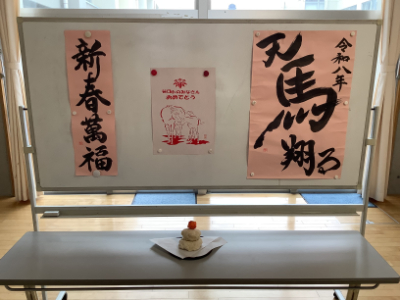 令和八年
天馬翔る
みなさん
おめでとう
新春萬福